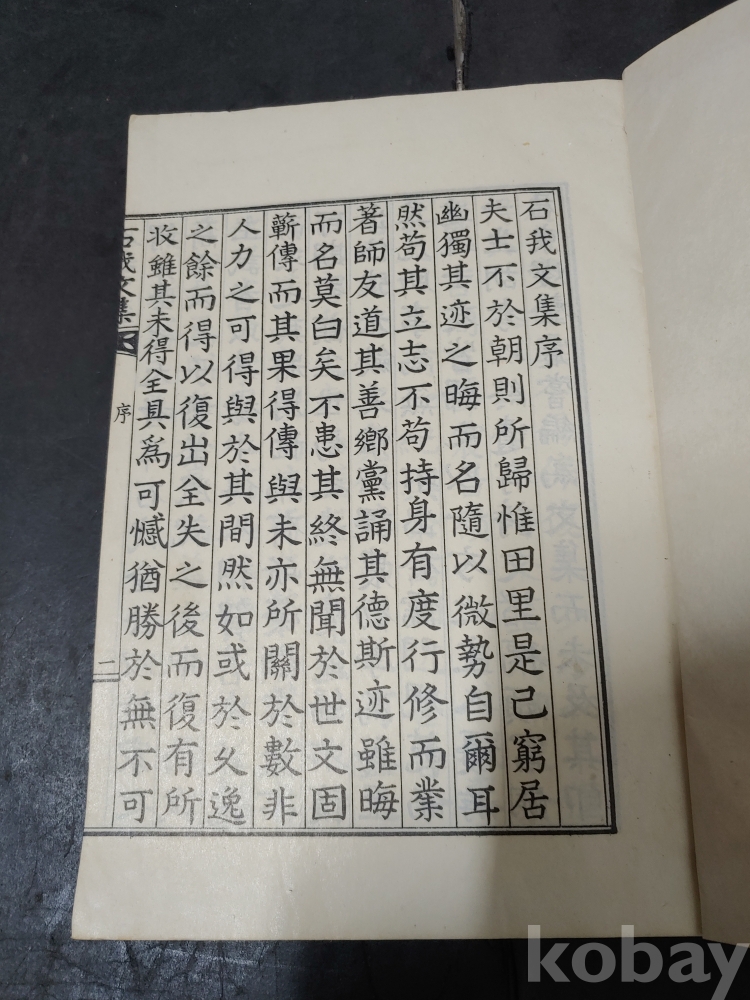 石我文集序
夫士不於朝則所歸惟田里是已窮居
幽獨其迹之晦而名隨以微勢自爾耳
然苟其立志不苟持身有度行修而業
著師友道其善鄉黨誦其德斯迹雖晦
而名莫白矣不患其終無聞於世文固
蘄傳而其果得傳與未亦所關於數非
人力之可得與於其間然如或於久逸
之餘而得以復出全失之後而復有所
收雖其未得全具爲可憾猶勝於無不可
石我文集
序
二
kobay